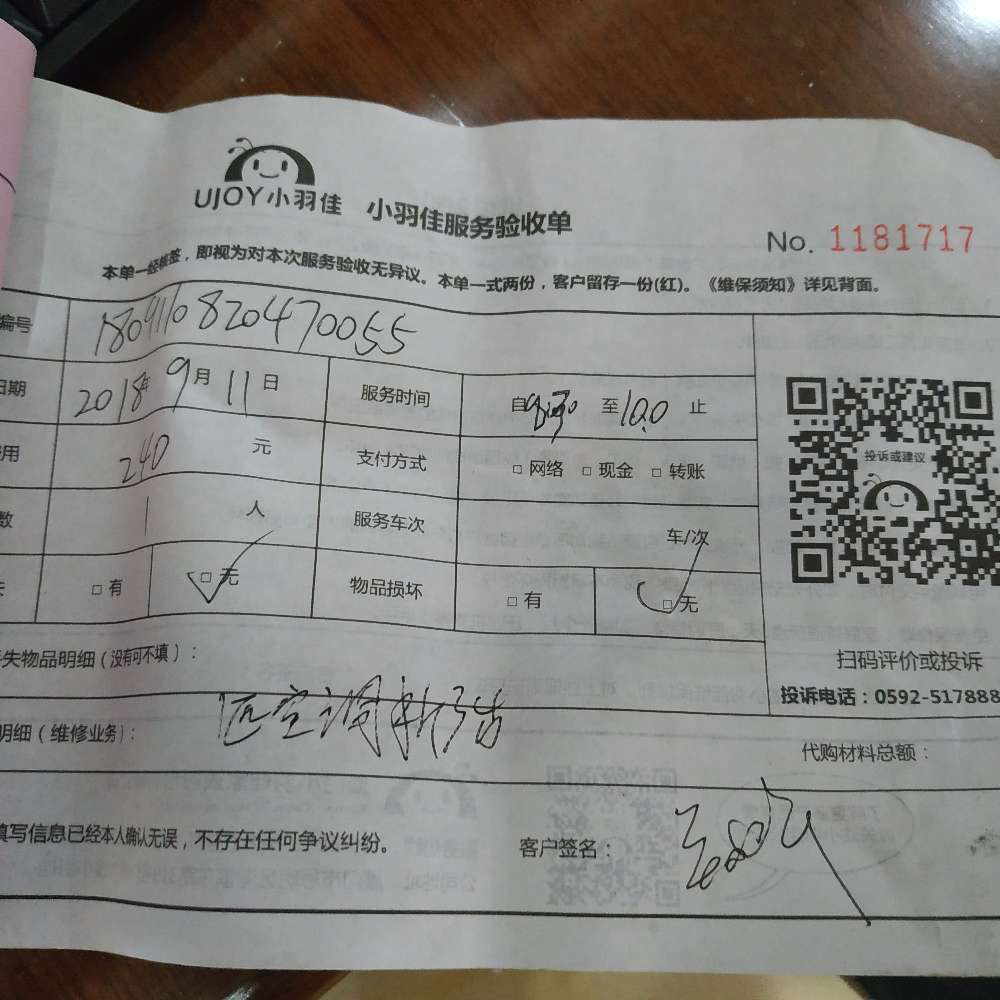 UJOY小羽佳 小羽佳服务验收单
No. 1181717
本单一经核签，即视为对本次服务验收无异议。本单一式两份，客户留存一份(红)。《维保须知》详见背面。
编号 1809110820470055
日期 2018年9月11日 服务时间 自 至 10.0 止
用 240 元 支付方式 □ 网络 □ 现金 □ 转账
数 1 人 服务车次 车/次
失 □ 有 □ 无 物品损坏 □ 有 □ 无
投诉或建议
扫码评价或投诉
投诉电话：0592-517888
失物品明细（没有可不填）：
明细（维修业务）： 空调 代购材料总额：
填写信息已经本人确认无误，不存在任何争议纠纷。 客户签名：